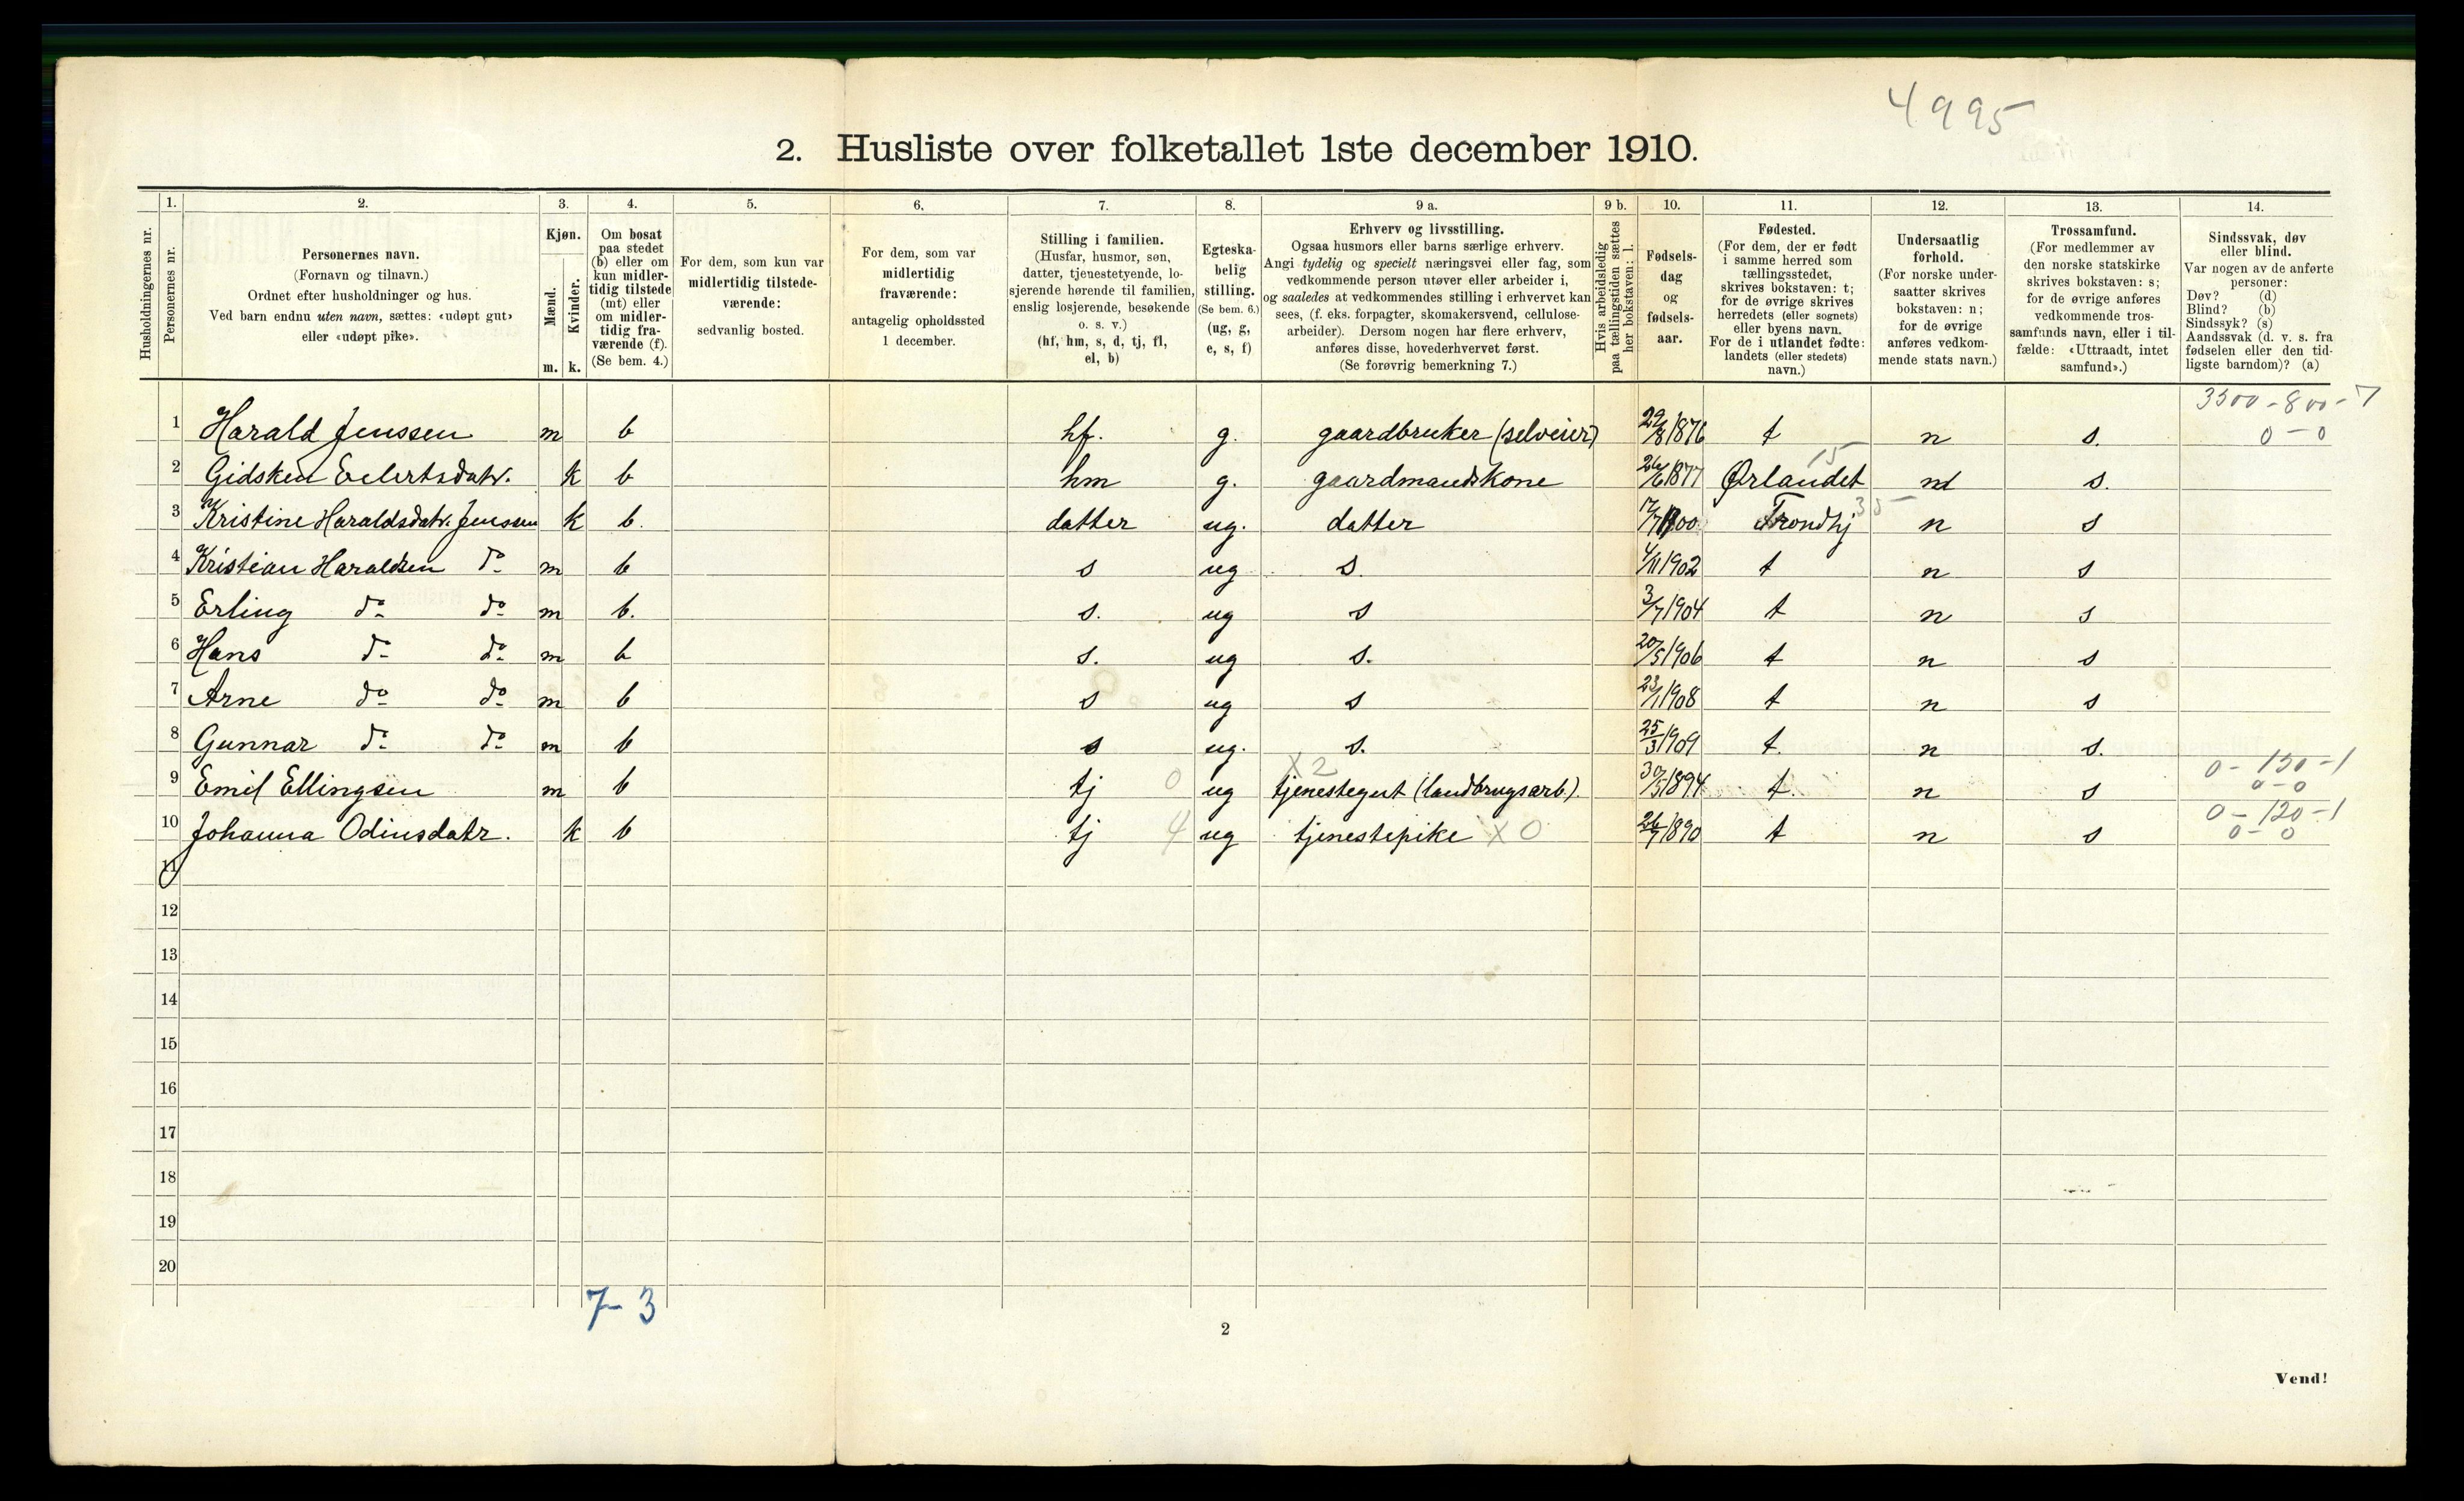 4995
2. Husliste over folketallet 1ste december 1910.
Husholdningernes nr.
1.
Personernes nr.
2.
Personernes navn.
(Fornavn og tilnavn.)
Ordnet efter husholdninger og hus.
Ved barn endnu uten navn, sættes: «udøpt gut»
eller «udøpt pike».
3.
Kjøn.
Mænd.
Kvinder.
m. k.
4.
Om bosat
paa stedet
(b) eller om
kun midler-
tidig tilstede
(mt) eller
om midler-
tidig fra-
værende (f).
(Se bem. 4.)
5.
For dem, som kun var
midlertidig tilstede-
værende:
sedvanlig bosted.
6.
For dem, som var
midlertidig
fraværende:
antagelig opholdssted
1 december.
7.
Stilling i familien.
(Husfar, husmor, søn,
datter, tjenestetyende, lo-
sjerende hørende til familien,
enslig losjerende, besøkende
o. s. v.)
(hf, hm, s, d, tj, fl,
el, b)
8.
Egteska-
belig
stilling.
(Se bem. 6.)
(ug, g,
e, s, f)
9 a.
Erhverv og livsstilling.
Ogsaa husmors eller barns særlige erhverv.
Angi tydelig og specielt næringsvei eller fag, som
vedkommende person utøver eller arbeider i,
og saaledes at vedkommendes stilling i erhvervet kan
sees, (f. eks. forpagter, skomakersvend, cellulose-
arbeider). Dersom nogen har flere erhverv,
anføres disse, hovederhvervet først.
(Se forøvrig bemerkning 7.)
9 b.
Hvis arbeidsledig
paa tællingstiden sættes
her bokstaven: l.
10.
Fødsels-
dag
og
fødsels-
aar.
11.
Fødested.
(For dem, der er født
i samme herred som
tællingsstedet,
skrives bokstaven: t;
for de øvrige skrives
herredets (eller sognets)
eller byens navn.
For de i utlandet fødte:
landets (eller stedets)
navn.)
12.
Undersaatlig
forhold.
(For norske under-
saatter skrives
bokstaven: n;
for de øvrige
anføres vedkom-
mende stats navn.)
13.
Trossamfund.
(For medlemmer av
den norske statskirke
skrives bokstaven: s;
for de øvrige anføres
vedkommende tros-
samfunds navn, eller i til-
fælde: «Uttraadt, intet
samfund».)
14.
Sindssvak, døv
eller blind.
Var nogen av de anførte
personer:
Døv? (d)
Blind? (b)
Sindssyk? (s)
Aandssvak (d. v. s. fra
fødselen eller den tid-
ligste barndom)? (a)
3300-800-7
1 Harald Jenssen m b hf. g. gaardbruker (selveier) 29/8 1876 t n s. 0-0
15
2 Gidsken Eilertsdatr. k b hm g. gaardmandskone 26/6 1877 Ørlandet n s.
3 Kristine Haraldsdatr. Jenssen k b. datter ug. datter 17/7 1900 Trondhj 35 n s
4 Kristian Haraldsen do m b s ug s. 4/11 1902 t n s
5 Erling do do m b. s. ug s 3/7 1904 t n s
6 Hans do do m b s. ug s. 20/5 1906 t n s
7 Arne do do m b s ug s 23/1 1908 t n s
8 Gunnar do do m b s ug. s. 25/3 1909 t. n s.
x2 0-150-1
9 Emil Ellingsen m b tj 0 ug tjenestegut (landbrugsarb). 30/5 1894 t. n s 0-0
0-120-1
10 Johanna Odinsdatr. k b tj 4 ug tjenestepike x0 26/7 1890 t n s 0-0
11
12
13
14
15
16
17
18
19
20
7-3
2
Vend!